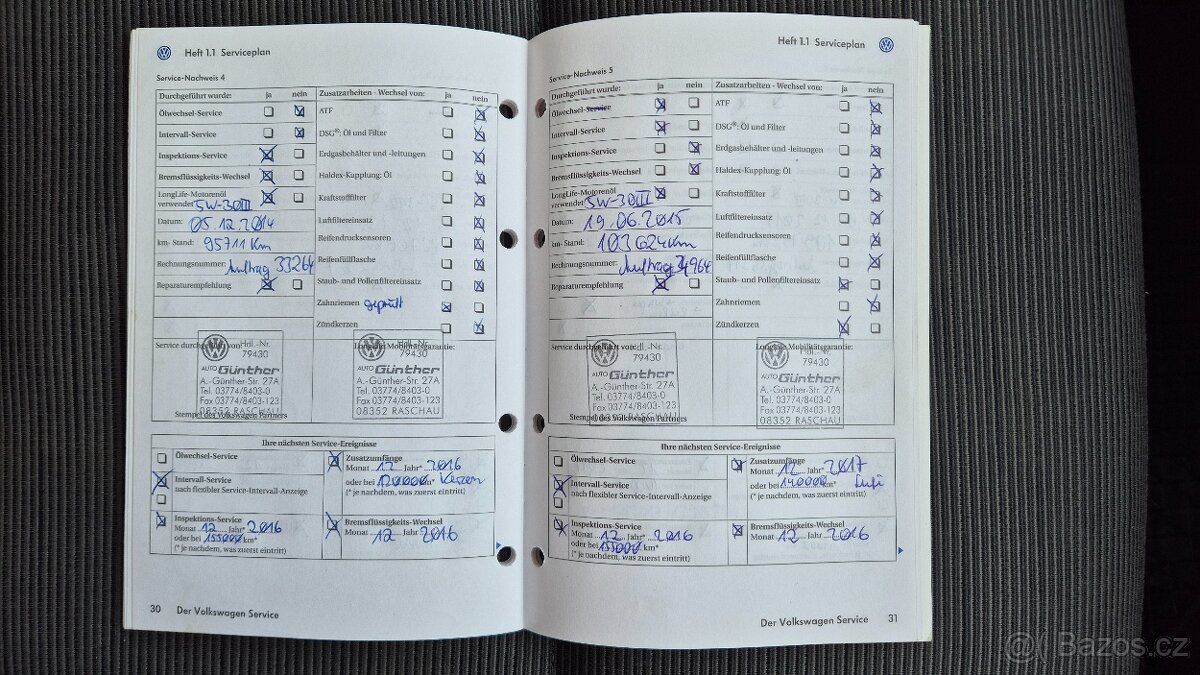 Heft 1.1 Serviceplan
Service-Nachweis 4
Durchgeführt wurde: ja nein
Ölwechsel-Service
Intervall-Service
Inspektions-Service
Bremsflüssigkeits-Wechsel
LongLife-Motorenöl
verwendet 5W-30 III
Datum: 05.12.2014
km- Stand: 95711 Km
Rechnungsnummer: Auftrag 33264
Reparaturempfehlung
Zusatzarbeiten - Wechsel von: ja nein
ATF
DSG®: Öl und Filter
Erdgasbehälter und -leitungen
Haldex-Kupplung: Öl
Kraftstofffilter
Luftfiltereinsatz
Reifendrucksensoren
Reifenfüllflasche
Staub- und Pollenfiltereinsatz
Zahnriemen geprüft
Zündkerzen
Service durchgeführt von:
Hdl.-Nr.
79430
AUTO Günther
A.-Günther-Str. 27A
Tel. 03774/8403-0
Fax 03774/8403-123
08352 RASCHAU
Stempel des Volkswagen Partners
LongLife Mobilitätsgarantie:
Hdl.-Nr.
79430
AUTO Günther
A.-Günther-Str. 27A
Tel. 03774/8403-0
Fax 03774/8403-123
08352 RASCHAU
Ihre nächsten Service-Ereignisse
Ölwechsel-Service
Intervall-Service
nach flexibler Service-Intervall-Anzeige
Inspektions-Service
Monat 12 Jahr* 2016
oder bei 155000 km*
(* je nachdem, was zuerst eintritt)
Zusatzumfänge
Monat 12 Jahr* 2016
oder bei 120000 Kerzen
(* je nachdem, was zuerst eintritt)
Bremsflüssigkeits-Wechsel
Monat 12 Jahr 2016
30 Der Volkswagen Service
Heft 1.1 Serviceplan
Service-Nachweis 5
Durchgeführt wurde: ja nein
Ölwechsel-Service
Intervall-Service
Inspektions-Service
Bremsflüssigkeits-Wechsel
LongLife-Motorenöl
verwendet 5W-30 III
Datum: 19.06.2015
km- Stand: 103624km
Rechnungsnummer: Auftrag
Reparaturempfehlung
Zusatzarbeiten - Wechsel von: ja nein
ATF
DSG®: Öl und Filter
Erdgasbehälter und -leitungen
Haldex-Kupplung: Öl
Kraftstofffilter
Luftfiltereinsatz
Reifendrucksensoren
Reifenfüllflasche
Staub- und Pollenfiltereinsatz
Zahnriemen
Zündkerzen
Service durchgeführt von:
Hdl.-Nr.
79430
AUTO Günther
A.-Günther-Str. 27A
Tel. 03774/8403-0
Fax 03774/8403-123
08352 RASCHAU
Stempel des Volkswagen Partners
LongLife Mobilitätsgarantie:
Hdl.-Nr.
79430
AUTO Günther
A.-Günther-Str. 27A
Tel. 03774/8403-0
Fax 03774/8403-123
08352 RASCHAU
Ihre nächsten Service-Ereignisse
Ölwechsel-Service
Intervall-Service
nach flexibler Service-Intervall-Anzeige
Inspektions-Service
Monat 12 Jahr* 2016
oder bei 155000 km*
(* je nachdem, was zuerst eintritt)
Zusatzumfänge
Monat 12 Jahr* 2017
oder bei 140000 Lufi
(* je nachdem, was zuerst eintritt)
Bremsflüssigkeits-Wechsel
Monat 12 Jahr 2016
Der Volkswagen Service 31
Bazos.cz